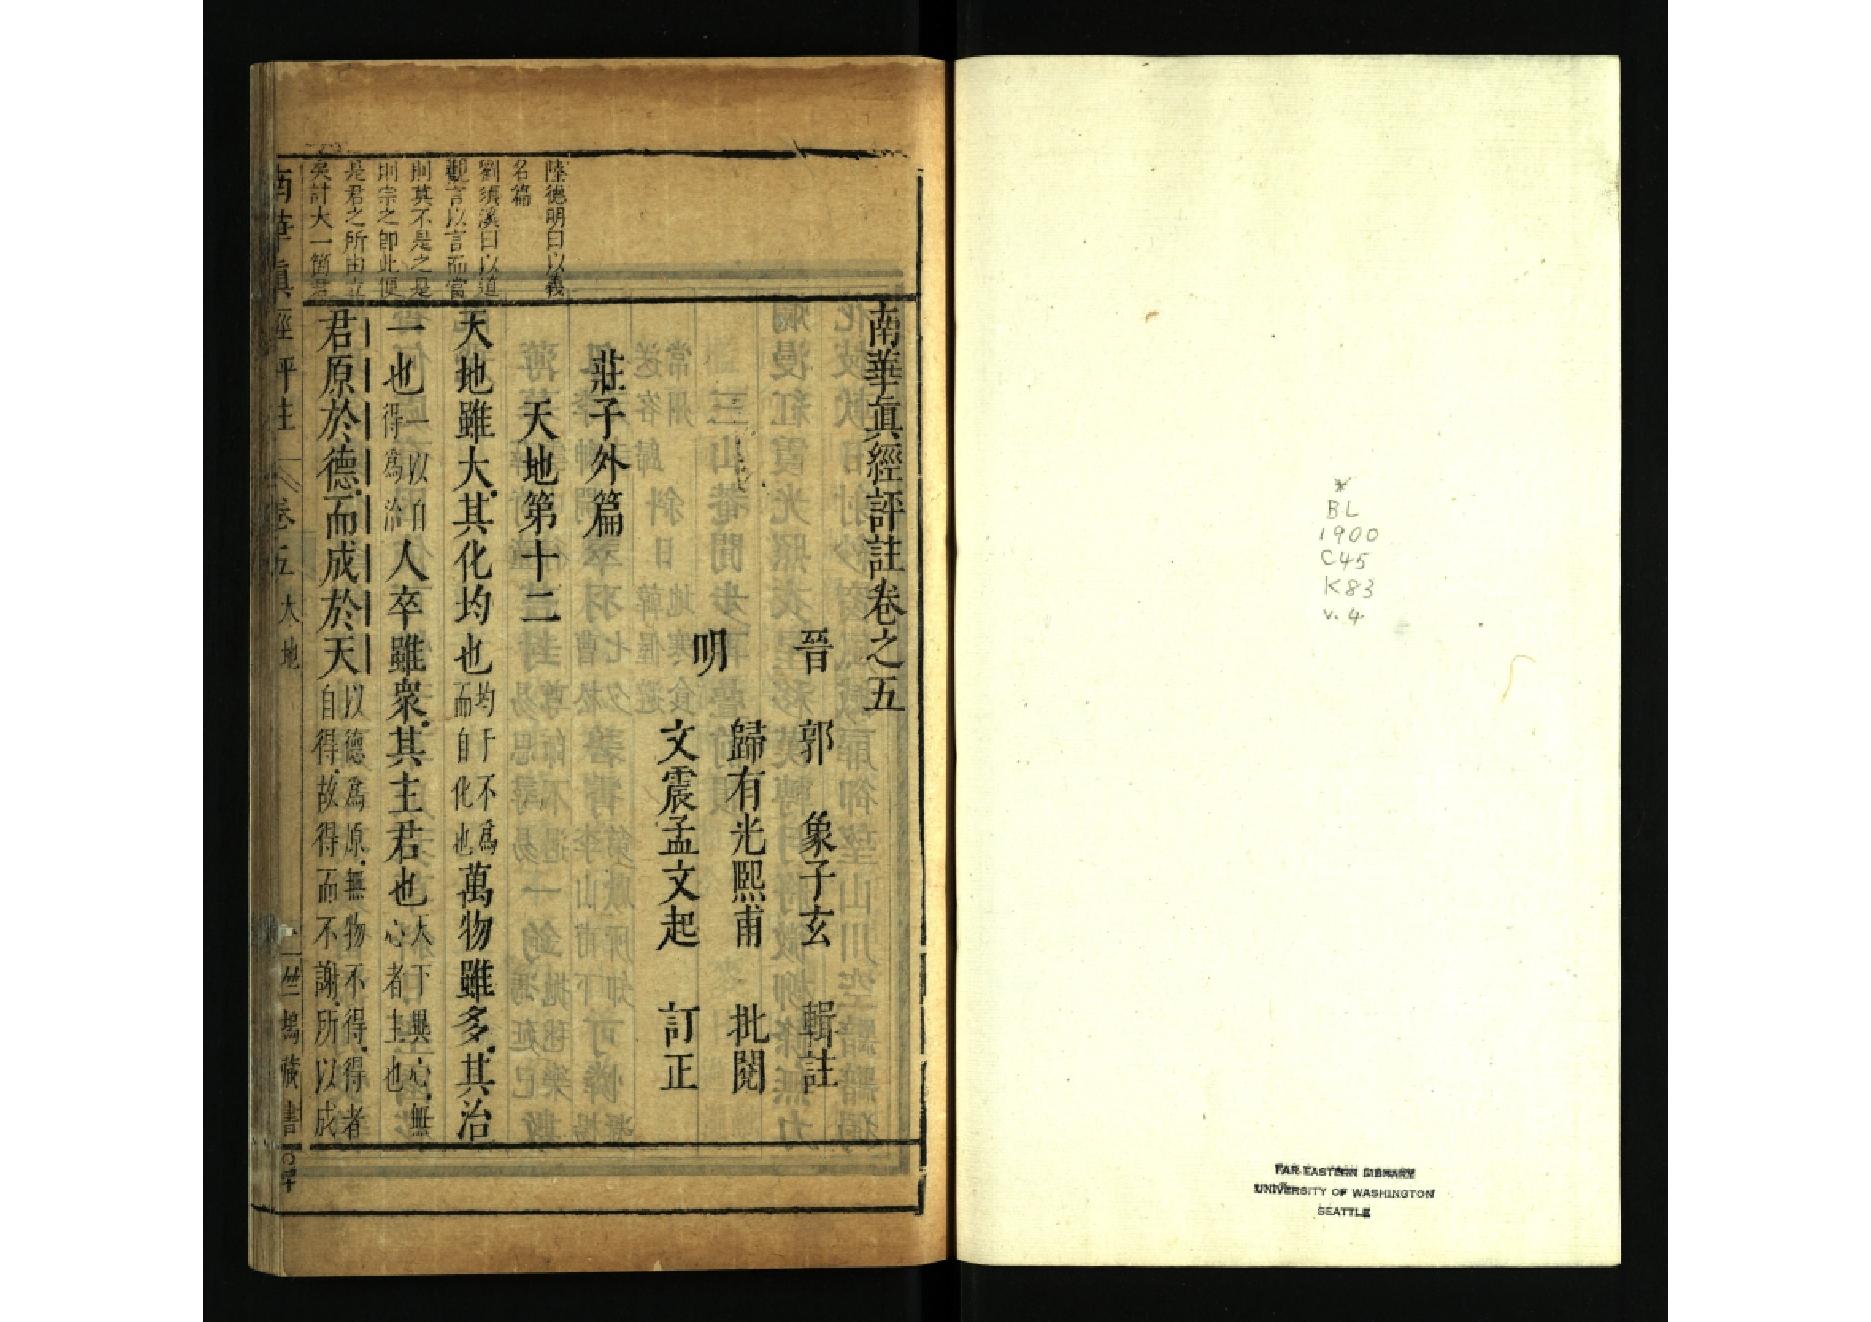 *
BL
1900
C45
K83
v. 4
FAR EASTERN LIBRARY
UNIVERSITY OF WASHINGTON
SEATTLE
陸德明曰以義
名篇
劉須溪曰以道
觀言以言而當
則莫不是之是
則宗之卽此便
是君之所由立
矣計大一箇君
南華眞經評註卷之五
晉 郭 象子玄 輯註
明 歸有光熙甫 批閱
文震孟文起 訂正
莊子外篇
天地第十二
天地雖大其化均也均于不爲而自化也萬物雖多其治
一也一以自得爲治人卒雖衆其主君也天下異心無心者主也
君原於德而成於天以德爲原無物不得得者自得故得而不謝所以成
南華眞經評註 卷五天地 一 竺塢藏書